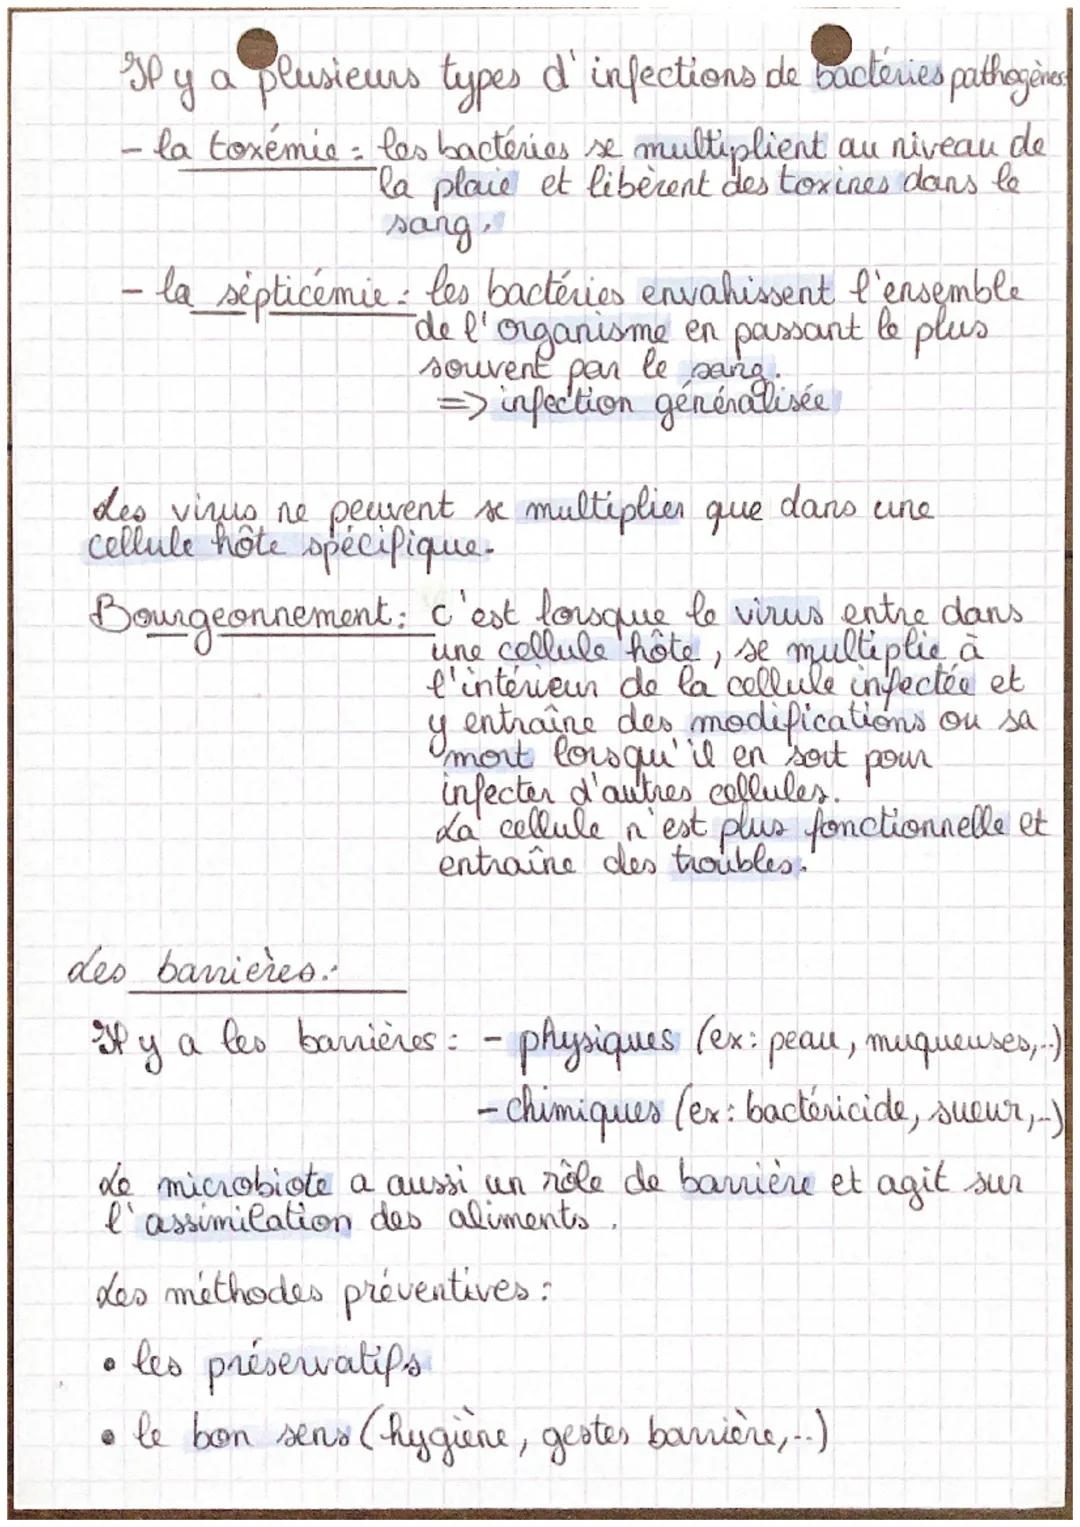 Il y a plusieurs types d'infections de bactéries pathogènes:
- la toxémie : les bactéries se multiplient au niveau de
la plaie et libèrent des toxines dans le
sang.
- la sépticémie : les bactéries envahissent l'ensemble
de l'organisme en passant le plus
souvent par le sang.
=> infection généralisée
Les virus ne peuvent se multiplier que dans une
cellule hôte spécifique.
Bourgeonnement : c'est lorsque le virus entre dans
une cellule hôte, se multiplie à
l'intérieur de la cellule infectée et
y entraîne des modifications ou sa
mort lorsqu'il en sort pour
infecter d'autres cellules.
La cellule n'est plus fonctionnelle et
entraîne des troubles.
Les barrières :
Il y a les barrières : - physiques (ex: peau, muqueuses,...)
- chimiques (ex: bactéricide, sueur,...)
Le microbiote a aussi un rôle de barrière et agit sur
l'assimilation des aliments.
Les méthodes préventives :
• les préservatifs
• le bon sens (hygiène, gestes barrière,...)